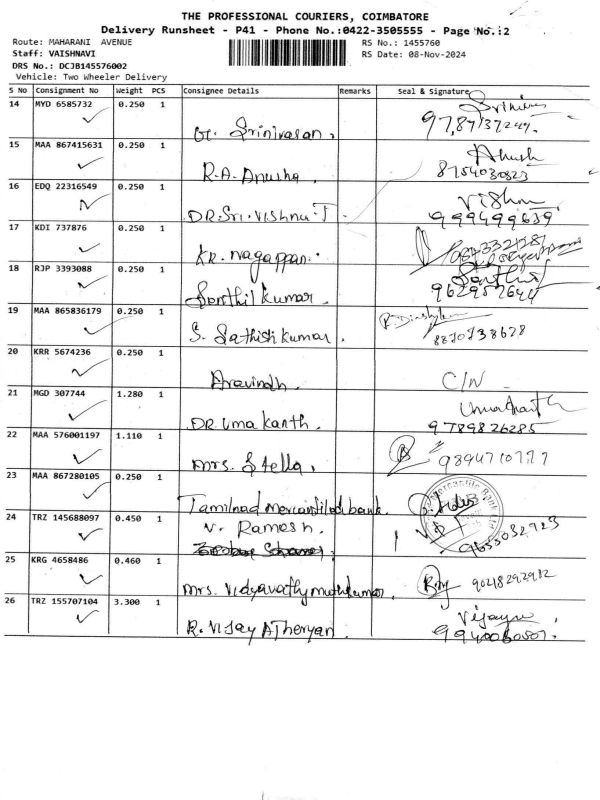 THE PROFESSIONAL COURIERS, COIMBATORE
Delivery Runsheet - P41 - Phone No.:0422-3505555 - Page No.:2
Route: MAHARANI AVENUE
RS No.: 1455760
Staff: VAISHNAVI
RS Date: 08-Nov-2024
DRS No.: DCJB145576002
Vehicle: Two Wheeler Delivery
S No Consignment No Weight PCS Consignee Details Remarks Seal & Signature
14 MYD 6585732 0.250 1
G. Srinivasan.
15 MAA 867415631 0.250 1
R.A. Anusha. Anush
16 EDQ 22316549 0.250 1
DR. Sri. Vishnu. T Vishnu
999499639
17 KDI 737876 0.250 1
KR. Nagappan.
18 RJP 3393088 0.250 1
Senthil Kumar.
9629572644
19 MAA 865836179 0.250 1
S. Sathish Kumar.
8870738628
20 KRR 5674236 0.250 1
Aravindh. C/N
21 MGD 307744 1.280 1
DR. Uma Kanth. Umakanth
9789826285
22 MAA 576001197 1.110 1
Mrs. Stella. 9894710777
23 MAA 867280105 0.250 1
Tamilnad Mercantile bank.
24 TRZ 145688097 0.450 1
V. Ramesh.
9655032923
25 KRG 4658486 0.460 1
Mrs. Vidyavathy Muthukumar. 90218292912
26 TRZ 155707104 3.300 1
R. Vijay Atheryan. Vijayn